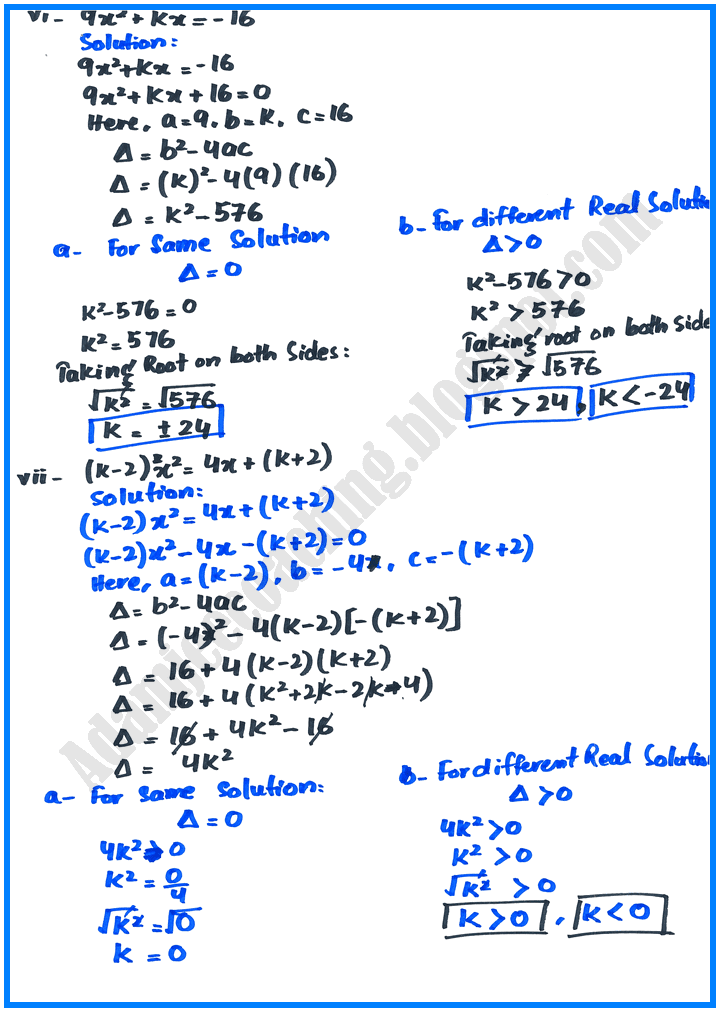 vi- 9x²+Kx=-16
Solution:
9x²+Kx=-16
9x²+Kx+16=0
Here, a=9, b=K, c=16
Δ=b²-4ac
Δ=(K)²-4(9)(16)
Δ=K²-576
a- For Same Solution
Δ=0
K²-576=0
K²=576
Taking Root on both Sides:
√K²=√576
K=±24
b- For different Real Soluti
Δ>0
K²-576>0
K²>576
Taking root on both side
√K²>√576
K>24, K<-24
vii- (K-2)x²=4x+(K+2)
Solution:
(K-2)x²=4x+(K+2)
(K-2)x²-4x-(K+2)=0
Here, a=(K-2), b=-4, c=-(K+2)
Δ=b²-4ac
Δ=(-4)²-4(K-2)[-(K+2)]
Δ=16+4(K-2)(K+2)
Δ=16+4(K²+2K-2K-4)
Δ=16+4K²-16
Δ=4K²
a- For Same Solution:
Δ=0
4K²=0
K²=0/4
√K²=√0
K=0
b- For different Real Solutio
Δ>0
4K²>0
K²>0
√K²>0
K>0, K<0
Adamjeecoaching.blogspot.com